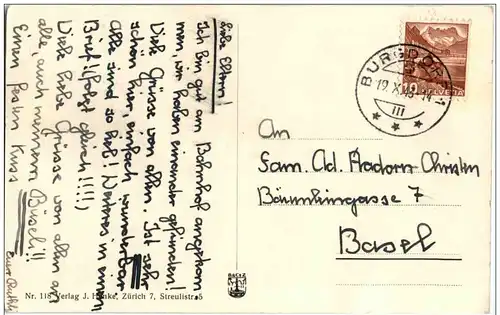 Liebe Eltern!
Ich bin gut am Bahnhof angekom
men, wir haben einander gefunden!
Viele Grüsse von allen. Ist sehr
schön hier, einfach wunderbar
Alle sind so lieb! Weiteres in einem
Brief! (folgt gleich!!!!)
Viele liebe Grüsse von allen an
alle, auch meinem Büseli!!
Einen festen Kuss
Eure Ruthli
BURGDORF
19.X.
III
HELVETIA
An
Fam. Ad.
Bäumlingasse 7
Basel
Nr. 118 Verlag J. Hanke, Zürich 7, Streulistr. 5